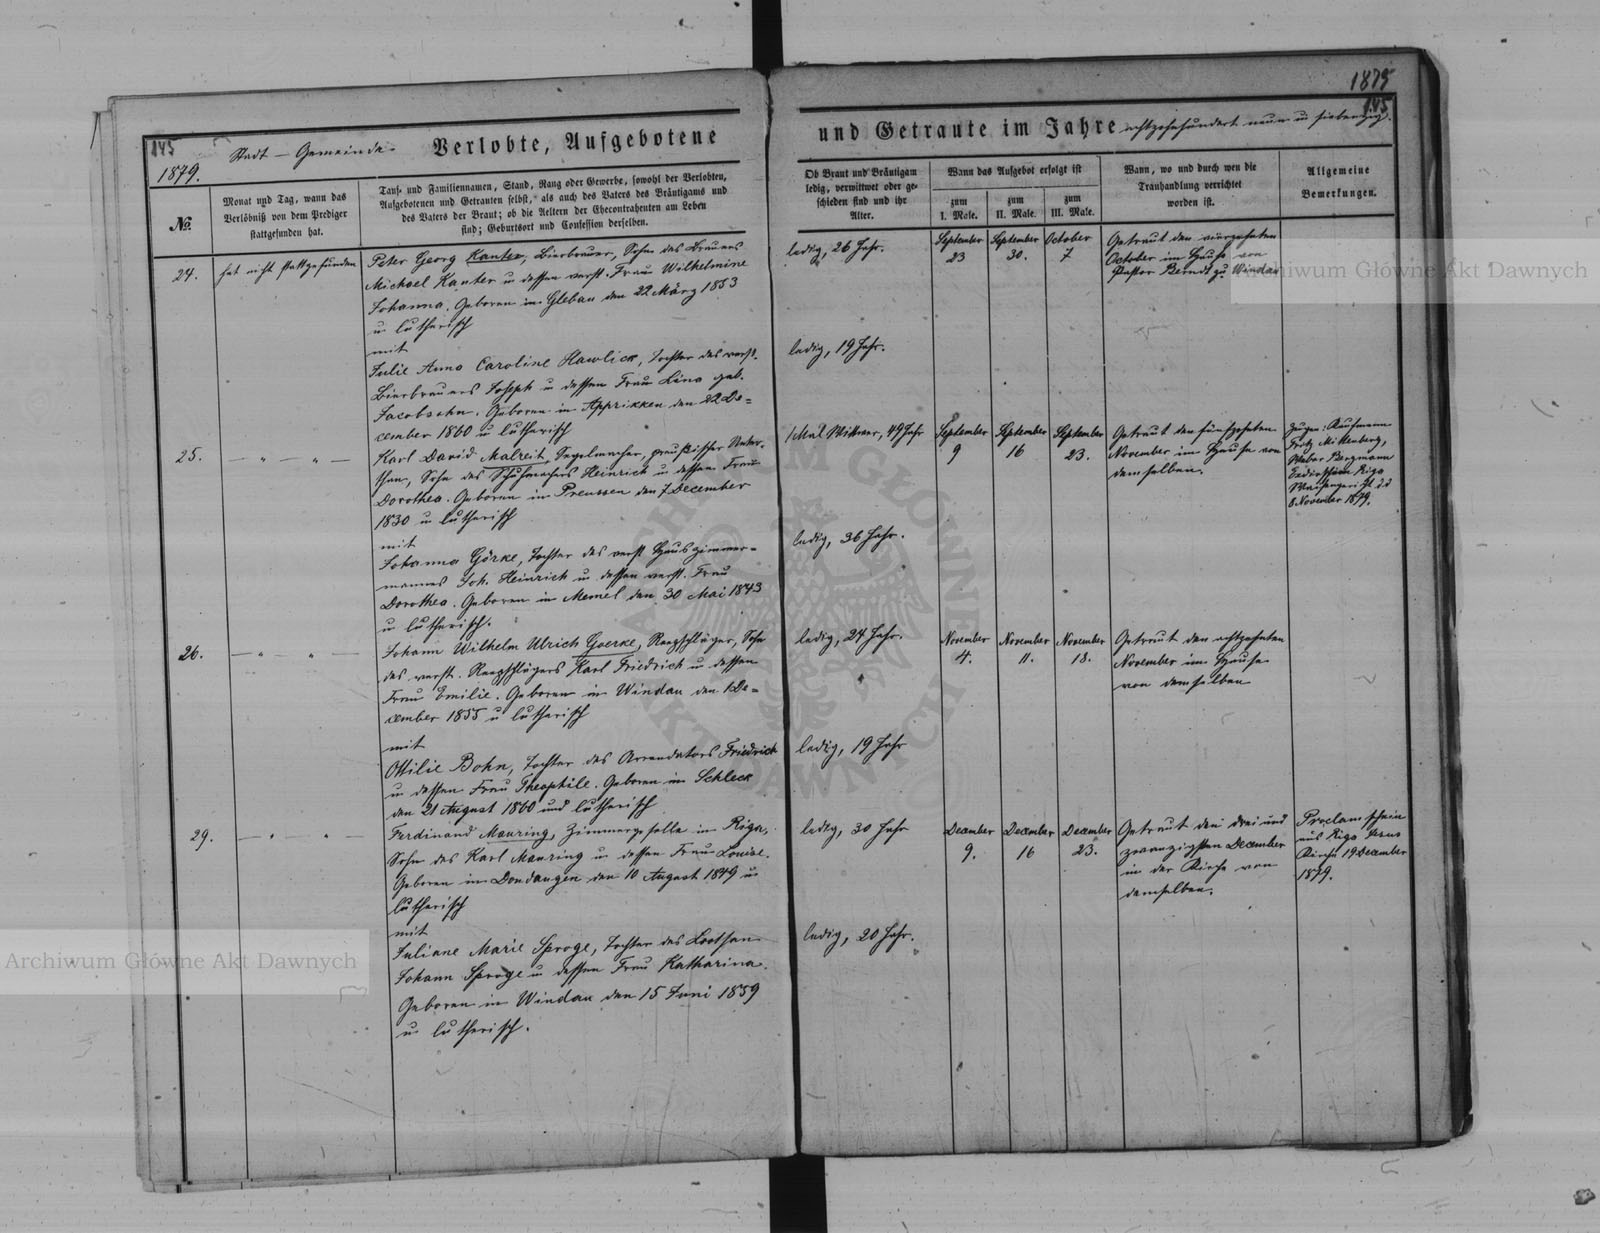 1879
145
145
Stadt - Gemeinde.
Verlobte, Aufgebotene
und Getraute im Jahre achtzehnhundert neun u siebenzig.
1879.
№.
Monat und Tag, wann das
Verlöbniß von dem Prediger
stattgefunden hat.
Tauf- und Familiennamen, Stand, Rang oder Gewerbe, sowohl der Verlobten,
Aufgebotenen und Getrauten selbst, als auch des Vaters des Bräutigams und
des Vaters der Braut; ob die Aeltern der Ehecontrahenten am Leben
sind; Geburtsort und Confession derselben.
Ob Braut und Bräutigam
ledig, verwittwet oder ge-
schieden sind und ihr
Alter.
Wann das Aufgebot erfolgt ist
zum
I. Male.
zum
II. Male.
zum
III. Male.
Wann, wo und durch wen die
Trauhandlung verrichtet
worden ist.
Allgemeine
Bemerkungen.
24.
hat nicht stattgefunden
Peter Georg Kanter, Bierbrauer, Sohn des Brauers
Michael Kanter u dessen verst. Frau Wilhelmine
Johanna. Geboren in Glebau den 22 März 1853
u lutherisch
mit
Julie Anna Caroline Hawlick, Tochter des verst.
Bierbrauers Joseph u dessen Frau Lina geb.
Jacobsohn. Geboren in Apprikken den 22 De-
cember 1860 u lutherisch
ledig, 26 Jahr.
ledig, 19 Jahr.
September
23
September
30.
October
7
Getraut den vierzehnten
October im Hause von
Pastor Berndt zu Windau
25.
— " — " —
Karl David Malreit, Segelmacher, preußischer Unter-
than, Sohn des Schuhmachers Heinrich u dessen Frau
Dorothea. Geboren in Preussen den 7 December
1830 u lutherisch
mit
Johanna Görke, Tochter des verst Hauszimmer-
mannes Joh. Heinrich u dessen verst. Frau
Dorothea. Geboren in Memel den 30 Mai 1843
u lutherisch.
1 Mal Wittwer, 49 Jahr
ledig, 36 Jahr.
September
9
September
16
September
23.
Getraut den fünfzehnten
November im Hause von
demselben.
Zeugen: Kaufmann
Fritz Mittenberg,
Weber Bergmann
Riga
Waisengericht d d
8 November 1879.
26.
— " — " —
Johann Wilhelm Ulrich Goerke, Reepschläger, Sohn
des verst. Reepschlägers Karl Friedrich u dessen
Frau Emilie. Geboren in Windau den 1 De-
cember 1855 u lutherisch
mit
Ottilie Bohn, Tochter des Arrendators Friedrich
u dessen Frau Theophile. Geboren in Schleck
den 21 August 1860 und lutherisch
ledig, 24 Jahr.
ledig, 19 Jahr
November
4.
November
11.
November
18.
Getraut den achtzehnten
November im Hause
von demselben
29.
— " — " —
Ferdinand Mauring, Zimmergeselle in Riga,
Sohn des Karl Mauring u dessen Frau Louise.
Geboren in Dondangen den 10 August 1849 u
lutherisch
mit
Juliane Marie Sproge, Tochter des Lootsen
Johann Sproge u dessen Frau Katharina.
Geboren in Windau den 15 Juni 1859
u lutherisch.
ledig, 30 Jahr
ledig, 20 Jahr.
December
9.
December
16
December
23.
Getraut den drei und
zwanzigsten December
in der Kirche von
demselben.
Proclamschein
aus Riga Jesus
Kirche 19 December
1879.
Archiwum Główne Akt Dawnych
Archiwum Główne Akt Dawnych
ARCHIWUM GŁÓWNE AKT DAWNYCH